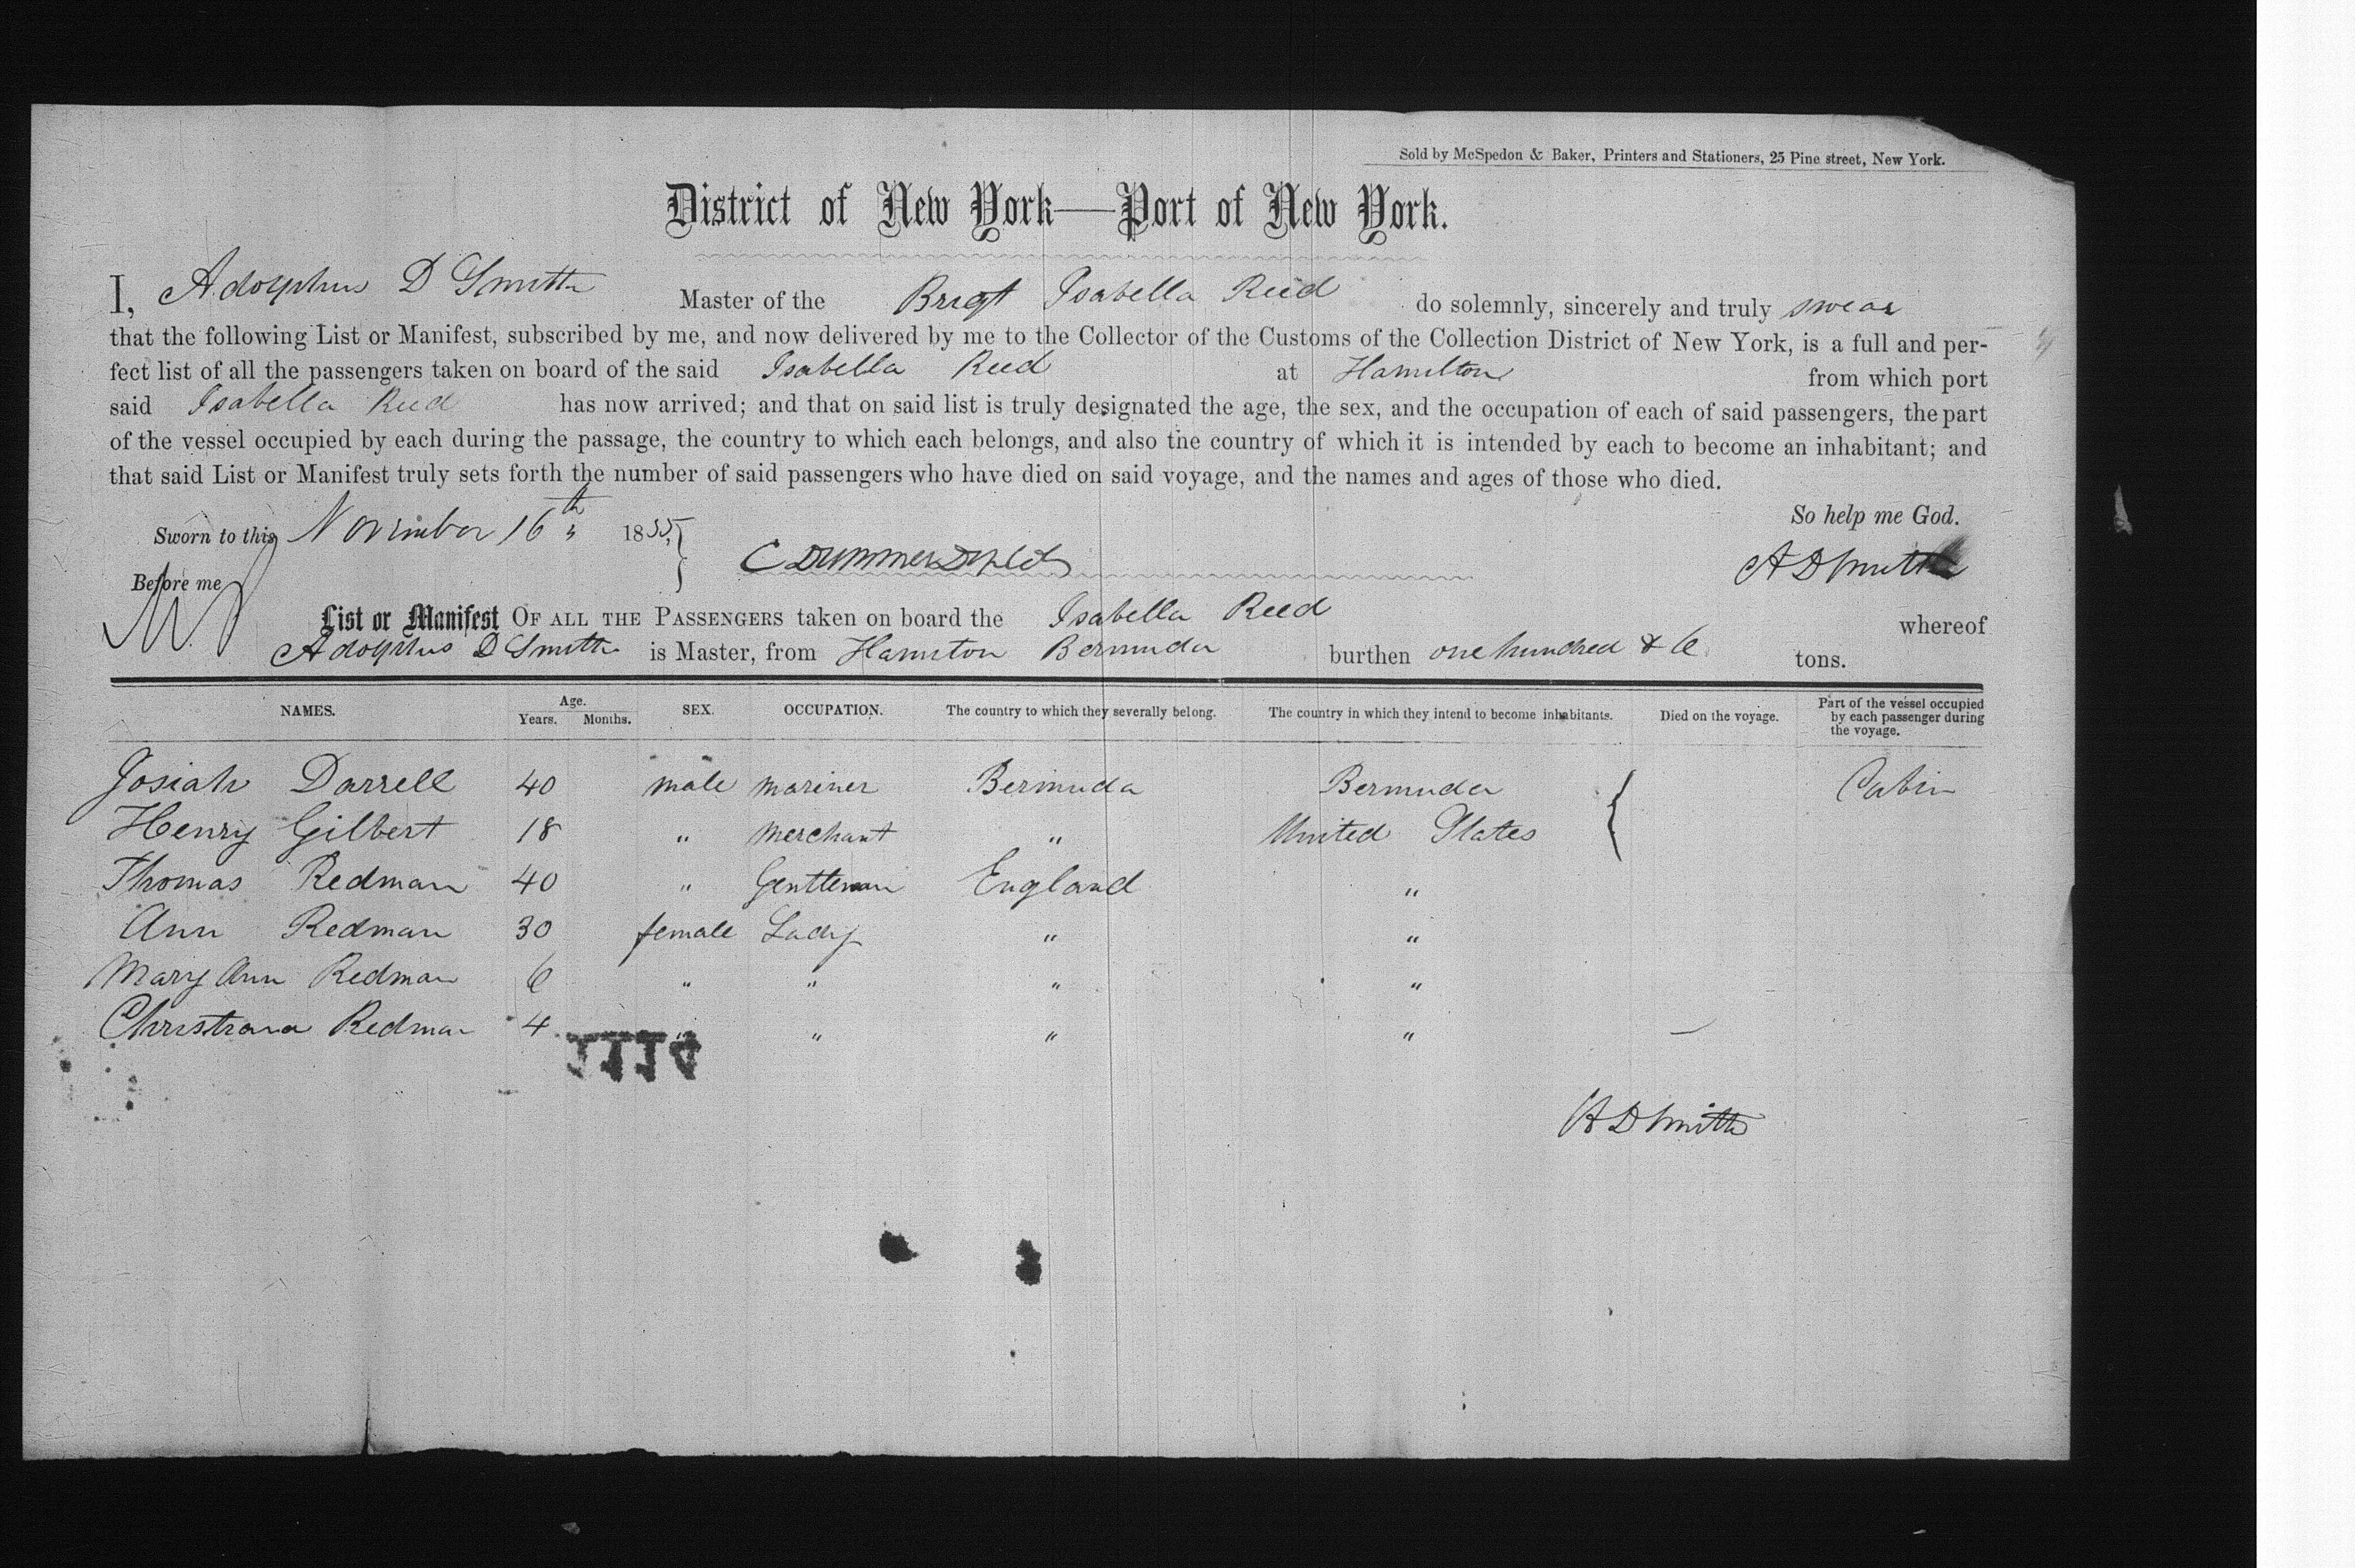 Sold by McSpedon & Baker, Printers and Stationers, 25 Pine street, New York.
District of New York—Port of New York.
I, Adolphus D Smith Master of the Brigt Isabella Reed do solemnly, sincerely and truly swear
that the following List or Manifest, subscribed by me, and now delivered by me to the Collector of the Customs of the Collection District of New York, is a full and per-
fect list of all the passengers taken on board of the said Isabella Reed at Hamilton from which port
said Isabella Reed has now arrived; and that on said list is truly designated the age, the sex, and the occupation of each of said passengers, the part
of the vessel occupied by each during the passage, the country to which each belongs, and also the country of which it is intended by each to become an inhabitant; and
that said List or Manifest truly sets forth the number of said passengers who have died on said voyage, and the names and ages of those who died.
So help me God.
Sworn to this November 16th 1855
A D Smith
Before me
List or Manifest OF ALL THE PASSENGERS taken on board the Isabella Reed whereof
Adolphus D Smith is Master, from Hamilton Bermuda burthen one hundred & 6 tons.
NAMES. Age. Years. Months. SEX. OCCUPATION. The country to which they severally belong. The country in which they intend to become inhabitants. Died on the voyage. Part of the vessel occupied by each passenger during the voyage.
Josiah Darrell 40 male mariner Bermuda Bermuda Cabin
Henry Gilbert 18 " merchant " United States
Thomas Redman 40 " Gentleman England "
Ann Redman 30 female Lady " "
Mary Ann Redman 6 " " " "
Christiana Redman 4 " " " " —
A D Smith